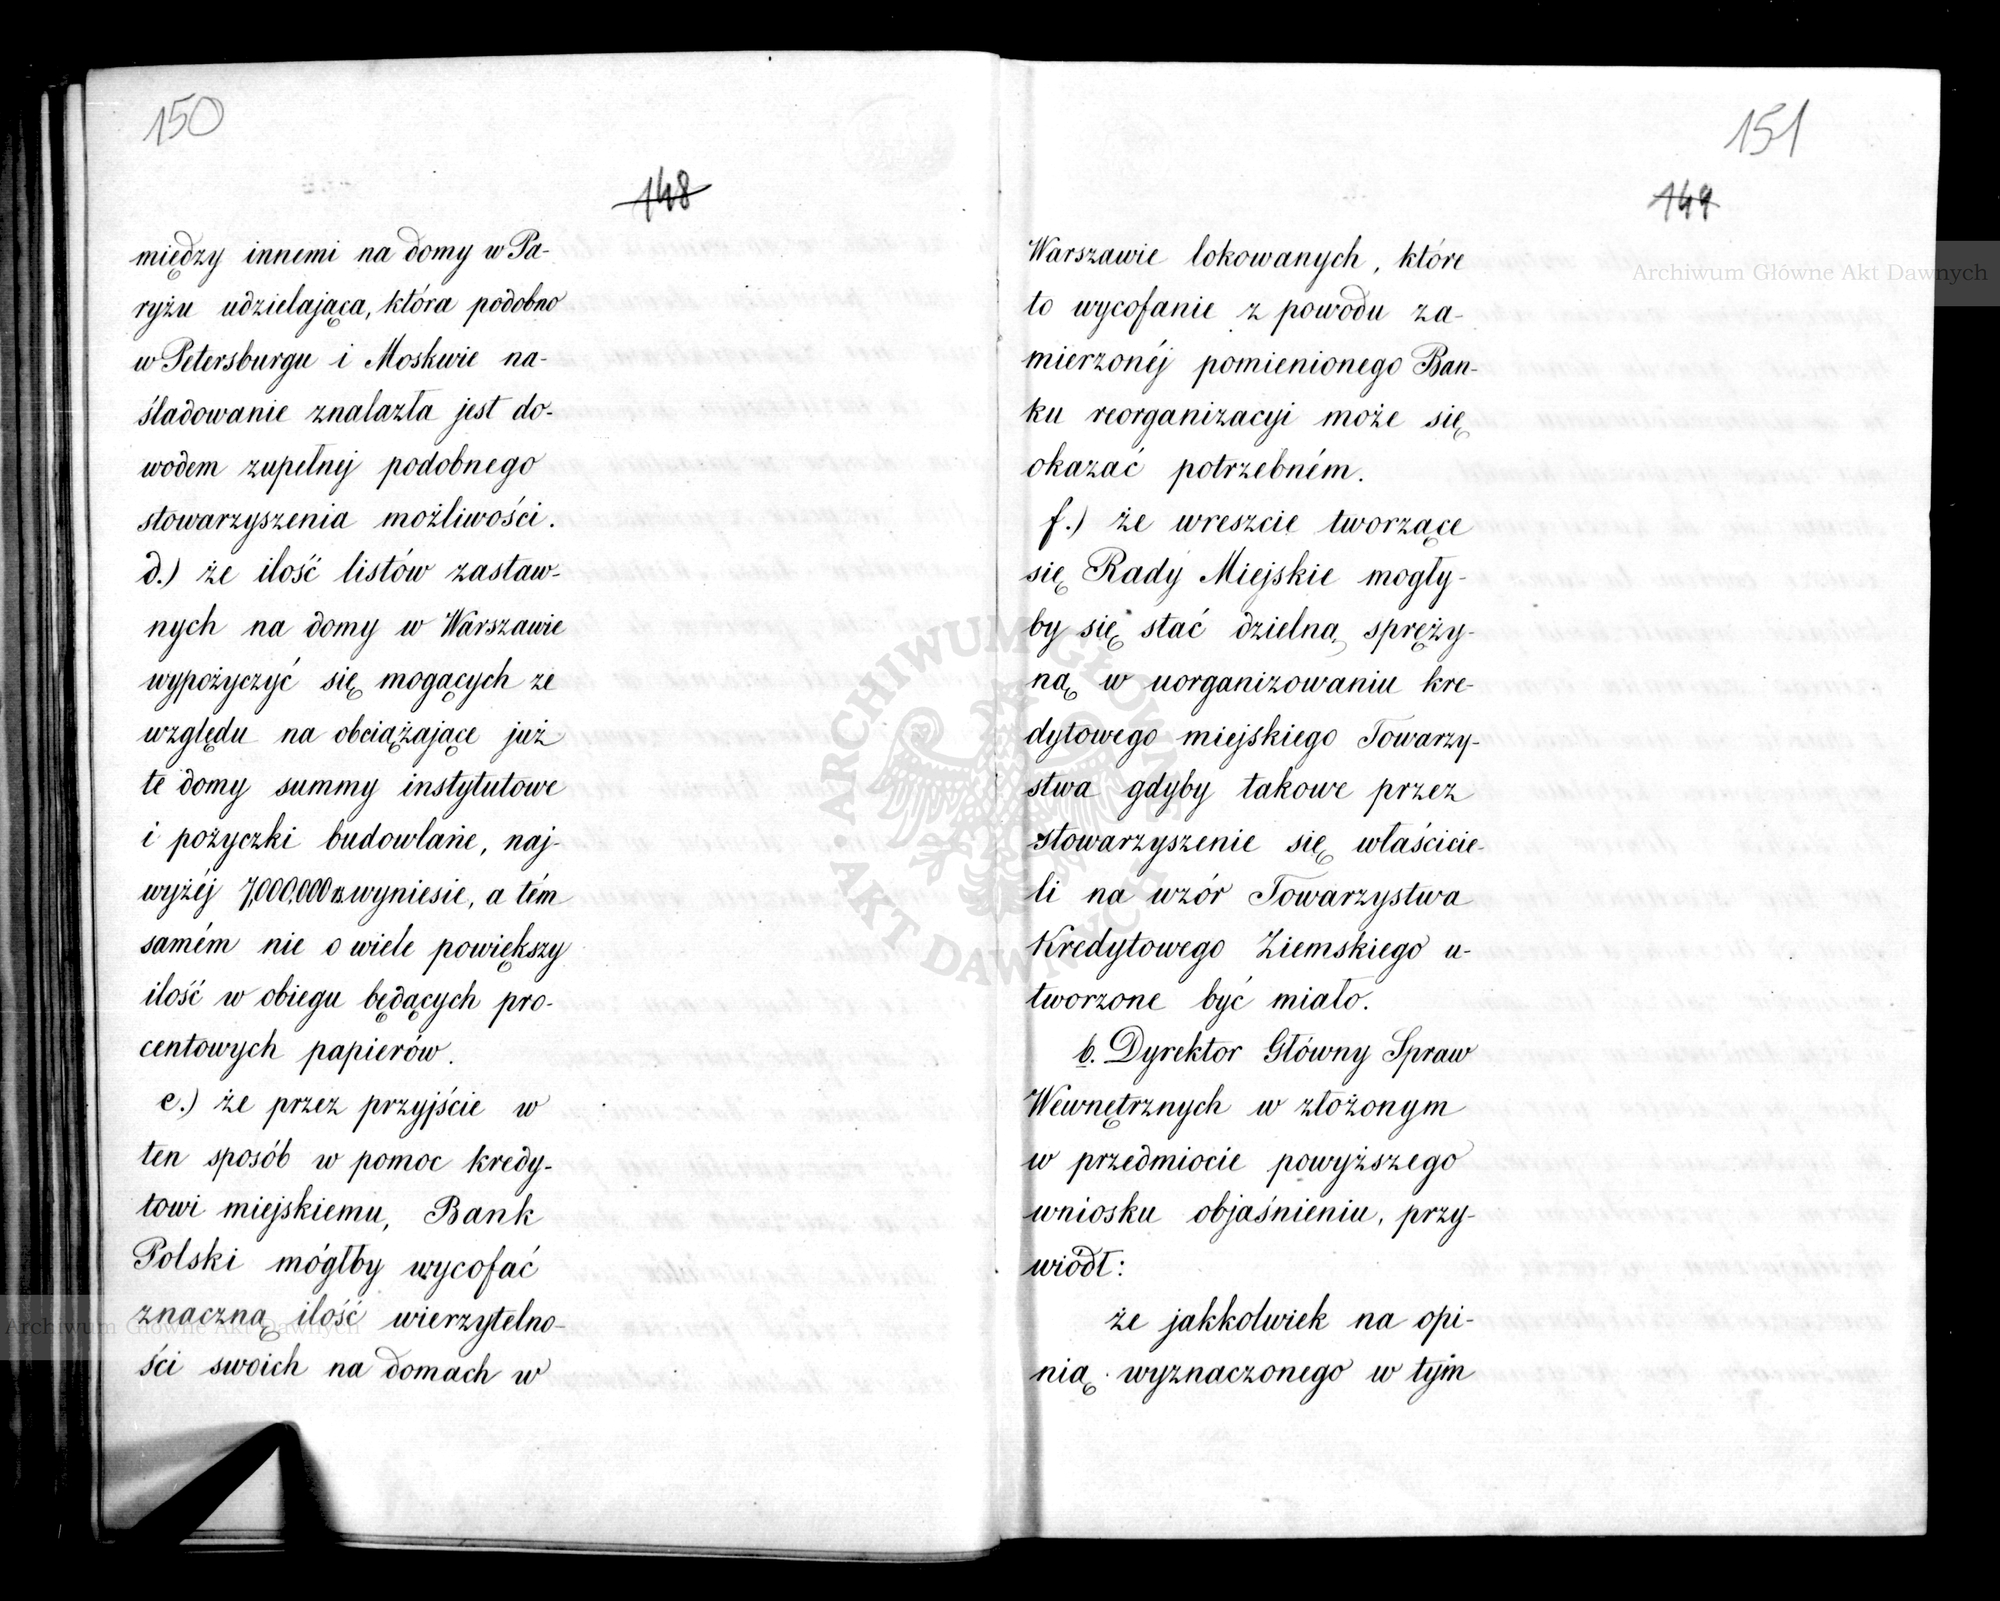 150
148
między innemi na domy w Pa-
ryżu udzielająca, która podobno
w Petersburgu i Moskwie na-
śladowanie znalazła jest do-
wodem zupełnej podobnego
stowarzyszenia możliwości.
d.) że ilość listów zastaw-
nych na domy w Warszawie
wypożyczyć się mogących ze
względu na obciążające już
te domy summy instytutowe
i pożyczki budowlane, naj-
wyżéj 7,000,000 rs. wyniesie, a tém
samém nie o wiele powiększy
ilość w obiegu będących pro-
centowych papierów.
e.) że przez przyjście w
ten sposób w pomoc kredy-
towi miejskiemu, Bank
Polski mógłby wycofać
znaczną ilość wierzytelno-
ści swoich na domach w
151
149
Warszawie lokowanych, które
to wycofanie z powodu za-
mierzonéj pomienionego Ban-
ku reorganizacyi może się
okazać potrzebném.
f.) że wreszcie tworzące
się Rady Miejskie mogły-
by się stać dzielną spręży-
ną w uorganizowaniu kre-
dytowego miejskiego Towarzy-
stwa gdyby takowe przez
stowarzyszenie się właścicie-
li na wzór Towarzystwa
Kredytowego Ziemskiego u-
tworzone być miało.
b. Dyrektor Główny Spraw
Wewnętrznych w złożonym
w przedmiocie powyższego
wniosku objaśnieniu, przy-
wiódł:
że jakkolwiek na opi-
nią wyznaczonego w tym
Archiwum Główne Akt Dawnych
Archiwum Główne Akt Dawnych
ARCHIWUM GŁÓWNE AKT DAWNYCH